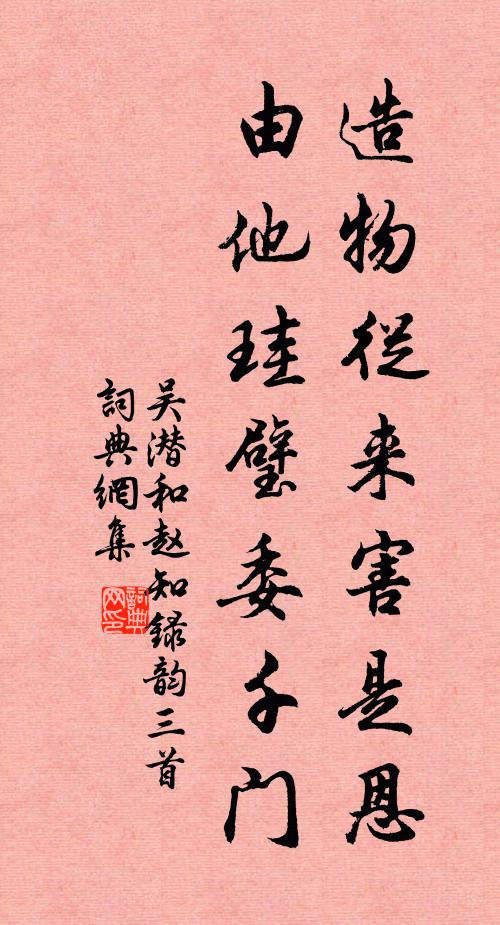 造物從来害是恩
由他珪璧委千门
吴潜和赵知録韵三首
詞典網集
詞典网印